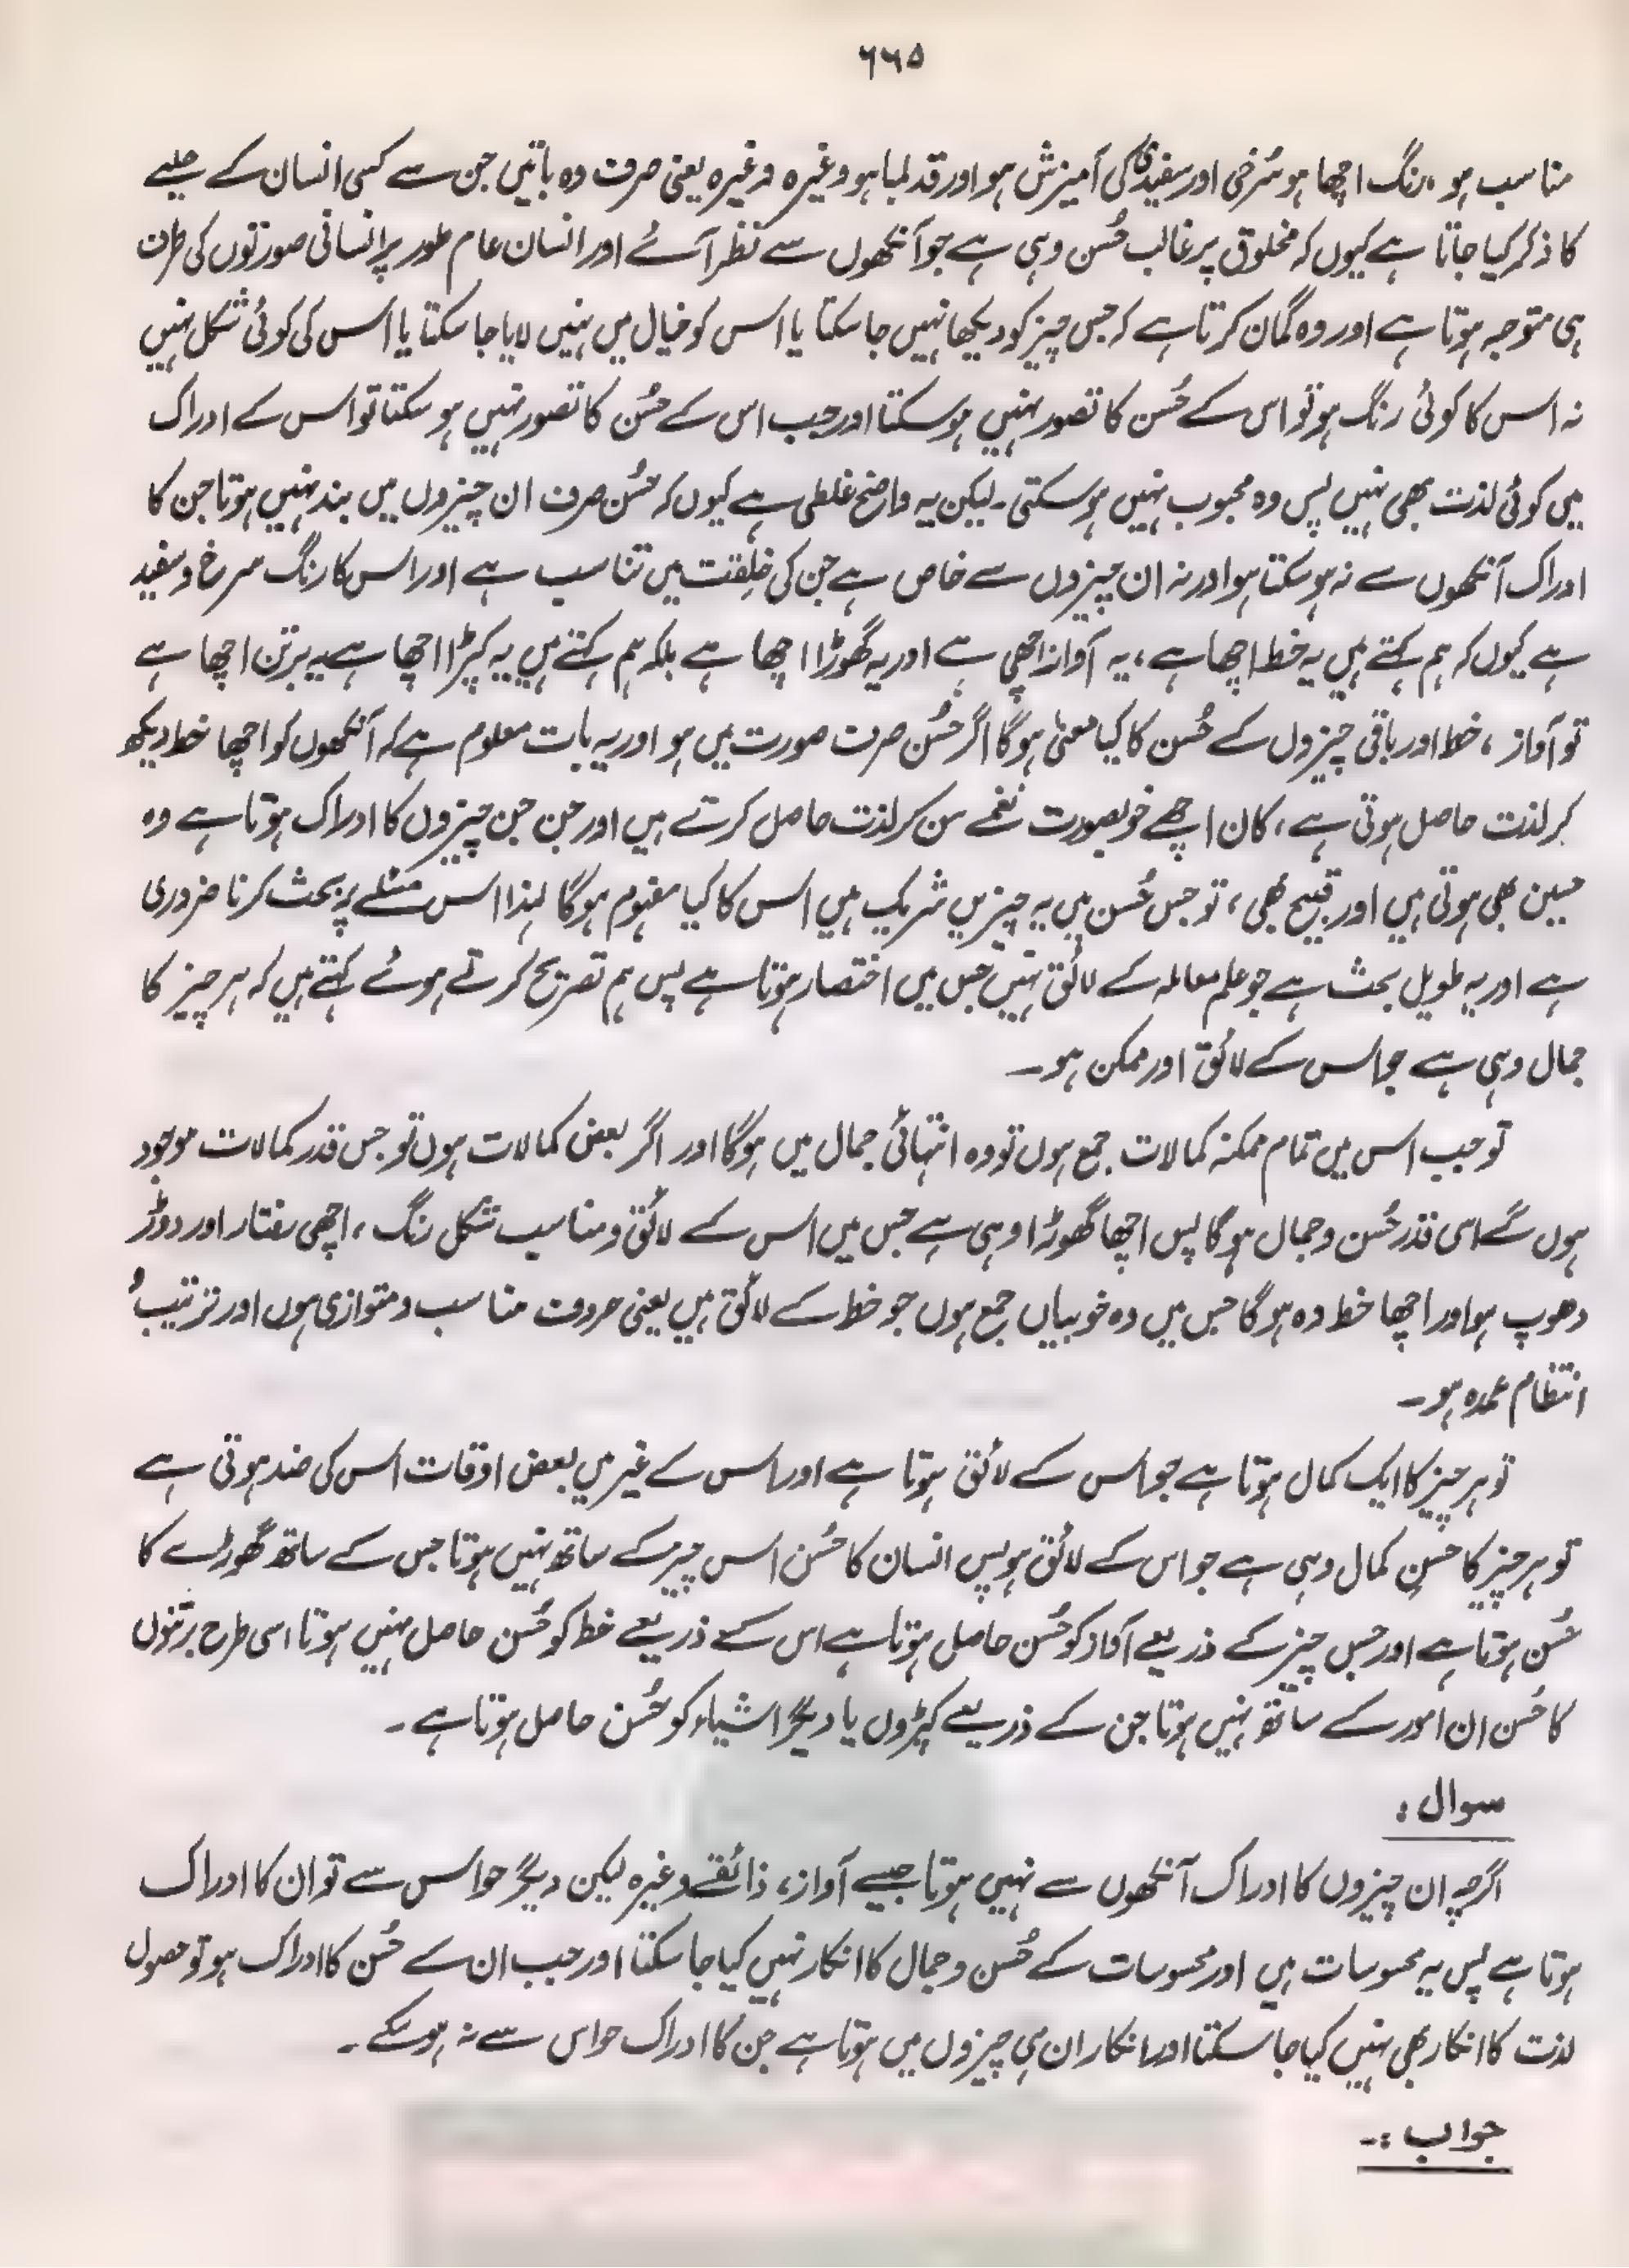 ۶۶۵
مناسب ہو، رنگ اچھا ہو سُرخی اور سفیدی کی آمیزش ہو اور قد لمبا ہو وغیرہ وغیرہ یعنی صرف وہ باتیں جن سے کسی انسان کے حلیے
کا ذکر کیا جاتا ہے کیوں کہ مخلوق پر غالب حُسن وہی ہے جو آنکھوں سے نظر آئے اور انسان عام طور پر انسانی صورتوں کی طرف
ہی متوجہ ہوتا ہے اور وہ گمان کرتا ہے کہ جس چیز کو دیکھا نہیں جا سکتا یا اس کو خیال میں نہیں لایا جا سکتا یا اس کی کوئی شکل نہیں
نہ اس کا کوئی رنگ ہو تو اس کے حُسن کا تصور نہیں ہو سکتا اور جب اس کے حسُن کا تصور نہیں ہو سکتا تو اس کے ادراک
میں کوئی لذت بھی نہیں پس وہ محبوب نہیں ہو سکتی۔ لیکن یہ واضح غلطی ہے کیوں کہ حسُن صرف ان چیزوں میں بند نہیں ہوتا جن کا
ادراک آنکھوں سے نہ ہو سکتا ہو اور نہ ان چیزوں سے خاص ہے جن کی خلِقت میں تناسب ہے اور اس کا رنگ سرخ و سفید
ہے کیوں کہ ہم کہتے ہیں یہ خط اچھا ہے، یہ آواز اچھی ہے اور یہ گھوڑا اچھا ہے بلکہ ہم کہتے ہیں یہ کپڑا اچھا ہے یہ برتن اچھا ہے
تو آواز، خط اور باقی چیزوں کے حُسن کا کیا معنیٰ ہوگا اگر حُسن صرف صورت میں ہو اور یہ بات معلوم ہے کہ آنکھوں کو اچھا خط دیکھ
کر لذت حاصل ہوتی ہے، کان اچھے خوبصورت نغمے سن کر لذت حاصل کرتے ہیں اور جن جن چیزوں کا ادراک ہوتا ہے وہ
حسین بھی ہوتی ہیں اور قبیح بھی، تو جس حُسن میں یہ چیزیں شریک ہیں اس کا کیا مفہوم ہوگا لہٰذا اس مسئلے پر بحث کرنا ضروری
ہے اور یہ طویل بحث ہے جو علم معاملہ کے لائق نہیں جس میں اختصار ہوتا ہے پس ہم تصریح کرتے ہوئے کہتے ہیں کہ ہر چیز کا
جمال وہی ہے جو اس کے لائق اور ممکن ہو۔
تو جب اس میں تمام ممکنہ کمالات جمع ہوں تو وہ انتہائی جمال میں ہوگا اور اگر بعض کمالات ہوں تو جس قدر کمالات موجود
ہوں گے اسی قدر حُسن و جمال ہوگا پس اچھا گھوڑا وہی ہے جس میں اس کے لائق و مناسب شکل رنگ، اچھی رفتار اور دوڑ
دھوپ ہو اور اچھا خط وہ ہوگا جس میں وہ خوبیاں جمع ہوں جو خط کے لائق ہیں یعنی حروف مناسب و متوازی ہوں اور ترتیب و
انتظام عمدہ ہو۔
تو ہر چیز کا ایک کمال ہوتا ہے جو اس کے لائق ہوتا ہے اور اس کے غیر میں بعض اوقات اس کی ضد ہوتی ہے
تو ہر چیز کا حسنِ کمال وہی ہے جو اس کے لائق ہو پس انسان کا حُسن اس چیز کے ساتھ نہیں ہوتا جس کے ساتھ گھوڑے کا
حُسن ہوتا ہے اور جس چیز کے ذریعے آواز کو حُسن حاصل ہوتا ہے اس کے ذریعے خط کو حُسن حاصل نہیں ہوتا اسی طرح برتنوں
کا حُسن ان امور کے ساتھ نہیں ہوتا جن کے ذریعے کپڑوں یا دیگر اشیاء کو حُسن حاصل ہوتا ہے۔
سوال:
اگرچہ ان چیزوں کا ادراک آنکھوں سے نہیں ہوتا جیسے آواز، ذائقے وغیرہ لیکن دیگر حواس سے تو ان کا ادراک
ہوتا ہے پس یہ محسوسات ہیں اور محسوسات کے حُسن و جمال کا انکار نہیں کیا جا سکتا اور جب ان کے حُسن کا ادراک ہو تو حصول
لذت کا انکار بھی نہیں کیا جا سکتا اور انکار ان ہی چیزوں میں ہوتا ہے جن کا ادراک حواس سے نہ ہو سکے۔
جواب:۔